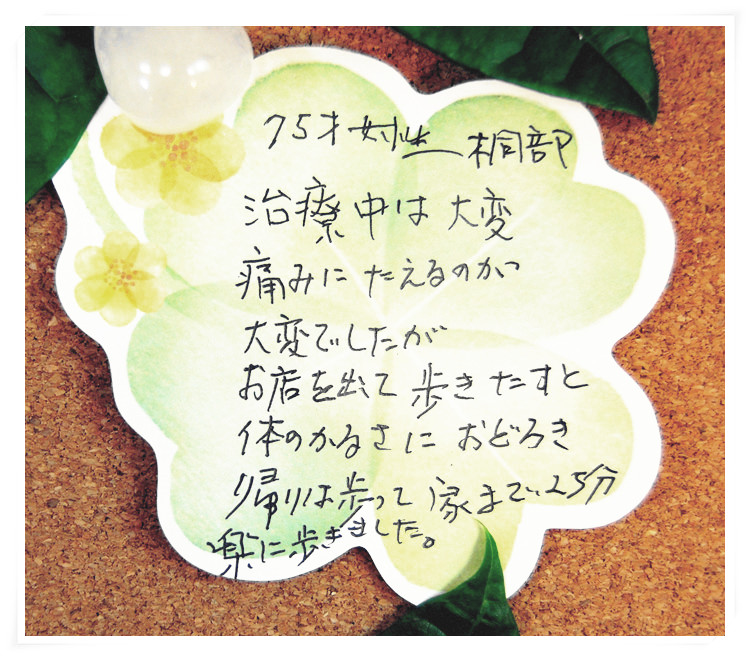 75才女性 桐部
治療中は大変
痛みにたえるのが
大変でしたが
お店を出て歩きだすと
体のかるさにおどろき
帰りは歩って家まで25分
楽に歩きました。